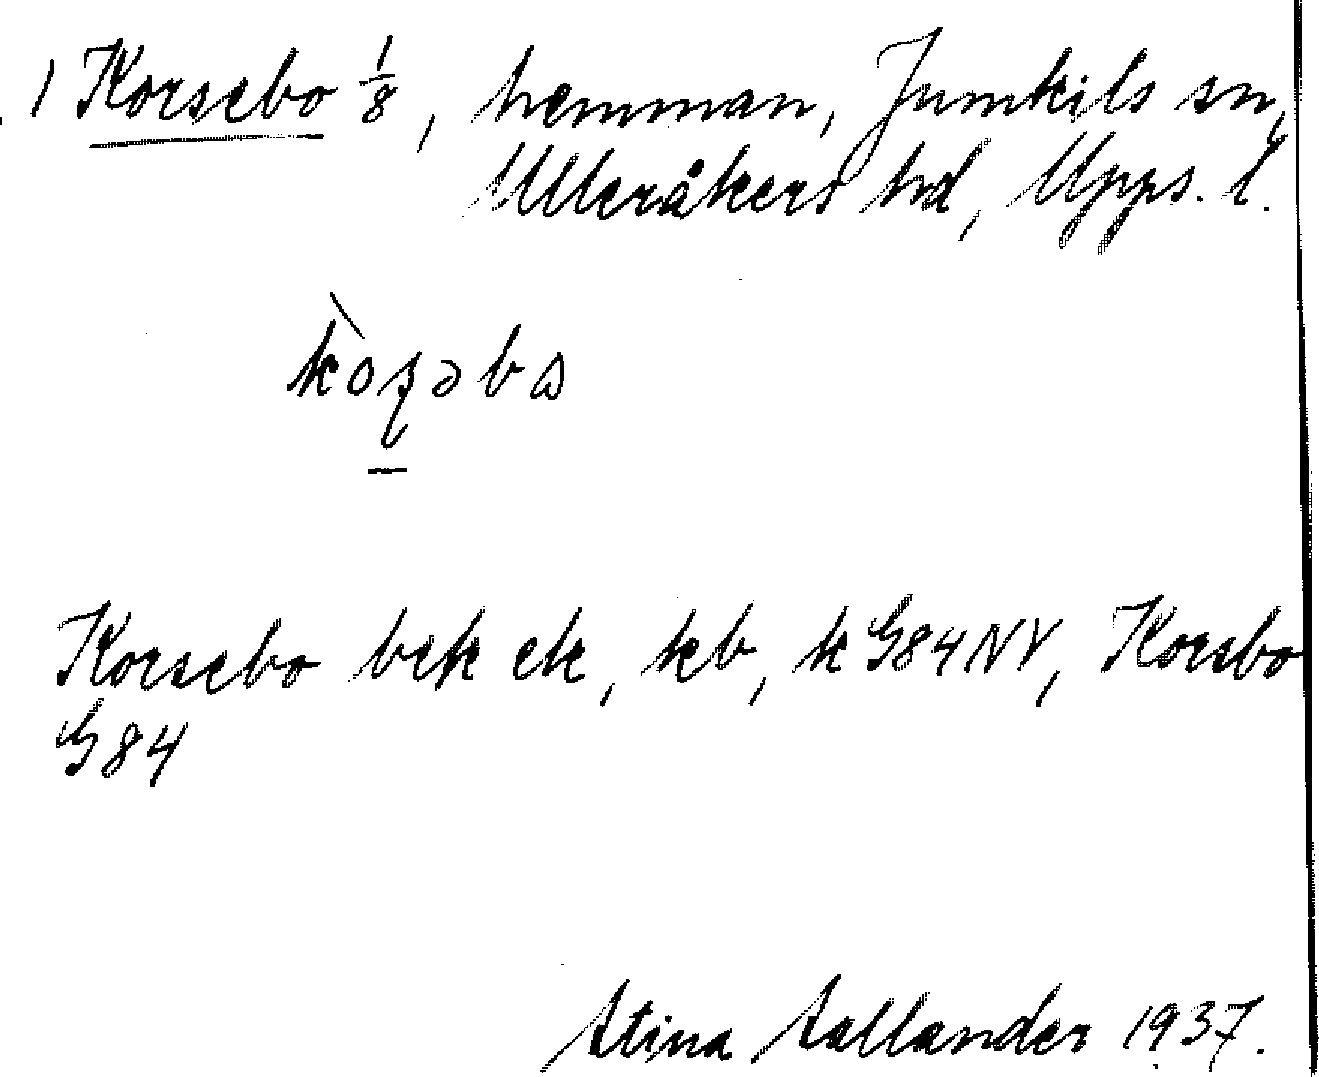 1 Korsebo 1/8, hemman, Jumkils sn,
Ulleråkers hd, Upps. l.
Korsebo bek ek, kb, k G84NV, Korsbo
G84
Stina Sallander 1937.